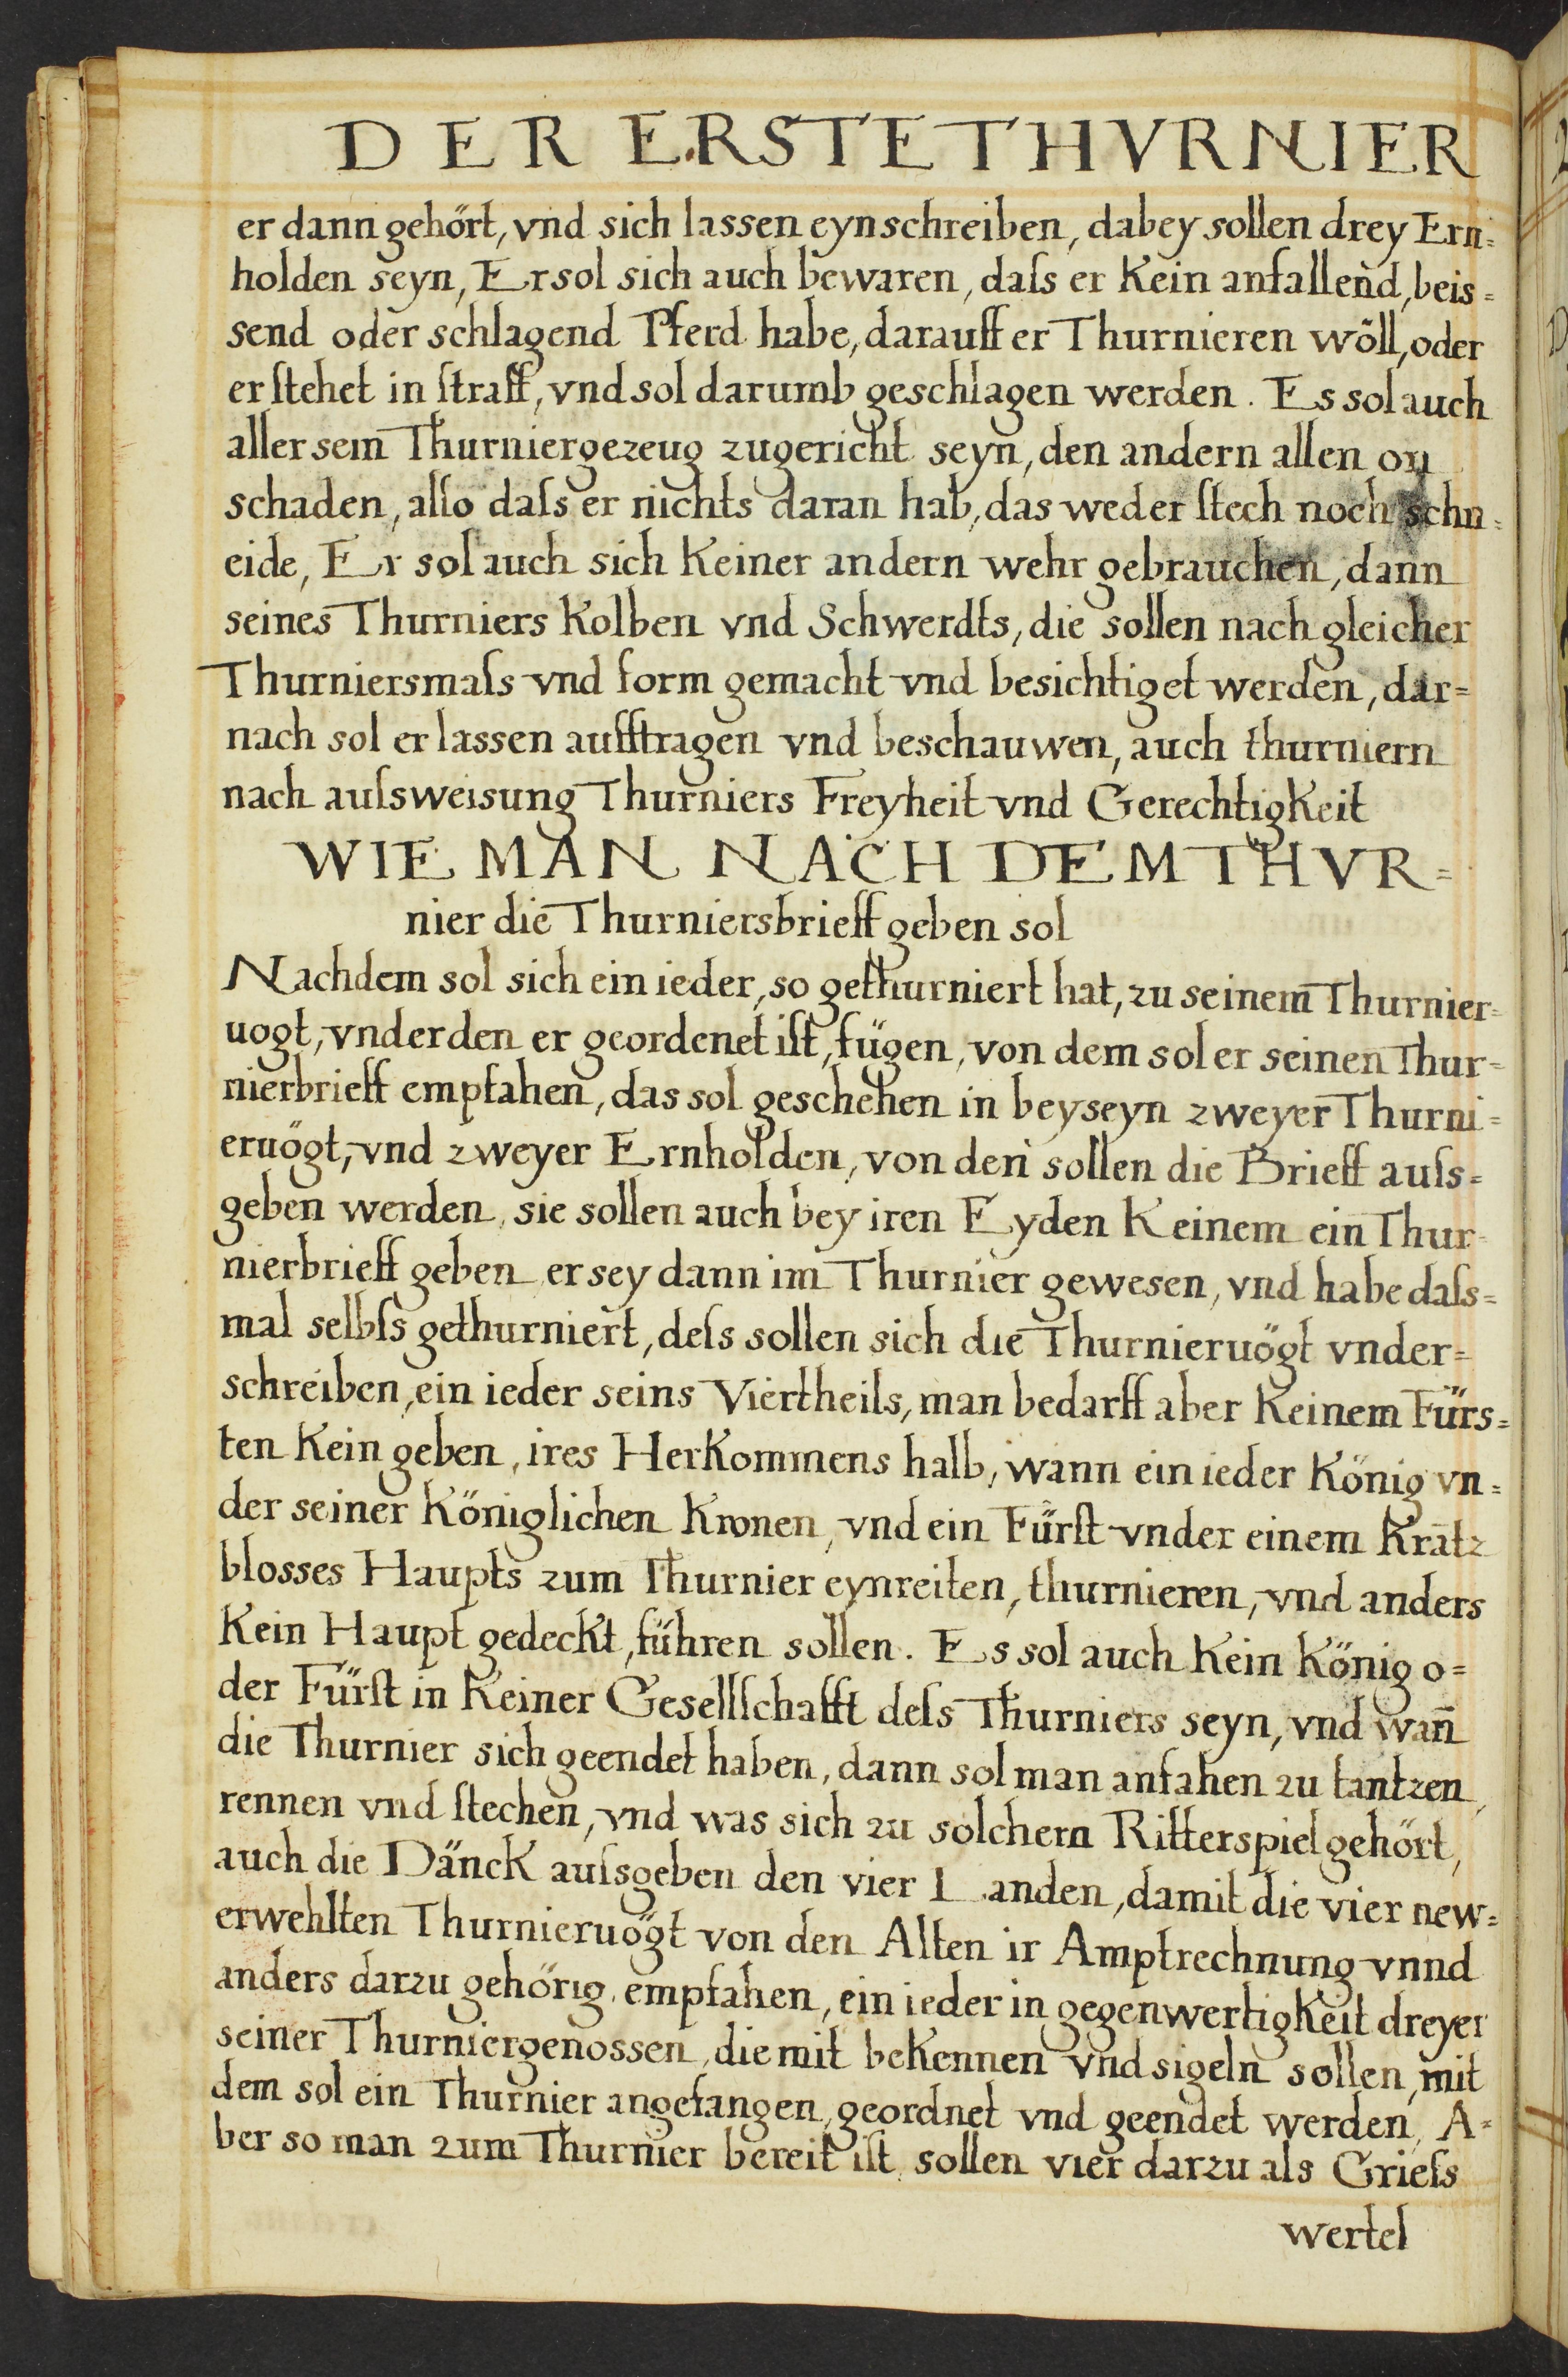 DER ERSTE THVRNIER
er dann gehört, vnd sich lassen eynschreiben, dabey sollen drey Ern=
holden seyn, Er sol sich auch bewaren, daſs er kein anfallend, beis=
send oder schlagend Pferd habe, darauff er Thurnieren wöll, oder
er ſtehet in ſtraff, vnd sol darumb geschlagen werden. Es sol auch
aller sein Thurniergezeug zugericht seyn, den andern allen on
schaden, alſo daſs er nichts daran hab, das weder ſtech noch schn=
eide, Er sol auch sich keiner andern wehr gebrauchen, dann
seines Thurniers kolben vnd Schwerdts, die sollen nach gleicher
Thurniersmaſs vnd form gemacht vnd besichtiget werden, dar=
nach sol er lassen aufftragen vnd beschauwen, auch thurniern
nach auſsweisung Thurniers Freyheit vnd Gerechtigkeit
WIE MAN NACH DEM THVR=
nier die Thurniersbrieff geben sol
Nachdem sol sich ein ieder, so gethurniert hat, zu seinem Thurnier=
uogt, vnder den er geordenet iſt, fügen, von dem sol er seinen Thur=
nierbrieff empfahen, das sol geschehen in beyseyn zweyer Thurni=
eruögt, vnd zweyer Ernholden, von den sollen die Brieff auſs=
geben werden, sie sollen auch bey iren Eyden keinem ein Thur=
nierbrieff geben, er sey dann im Thurnier gewesen, vnd habe daſs=
mal selbſs gethurniert, deſs sollen sich die Thurnieruögt vnder=
schreiben, ein ieder seins Viertheils, man bedarff aber keinem Fürs=
ten kein geben, ires Herkommens halb, wann ein ieder König vn=
der seiner Königlichen Kronen, vnd ein Fürſt vnder einem Krātz
blosses Haupts zum Thurnier eynreiten, thurnieren, vnd anders
kein Haupt gedeckt, führen sollen. Es sol auch kein König o=
der Fürſt in keiner Gesellſchafft deſs Thurniers seyn, vnd wan̄
die Thurnier sich geendet haben, dann sol man anfahen zu tantzen,
rennen vnd ſtechen, vnd was sich zu solchem Ritterspiel gehört,
auch die Dänck auſsgeben den vier Landen, damit die vier new=
erwehlten Thurnieruögt von den Alten ir Amptrechnung vnnd
anders darzu gehörig, empfahen, ein ieder in gegenwertigkeit dreyer
seiner Thurniergenossen, die mit bekennen vnd sigeln sollen, mit
dem sol ein Thurnier angefangen, geordnet vnd geendet werden, A=
ber so man zum Thurnier bereit iſt, sollen vier darzu als Grieſs
wertel